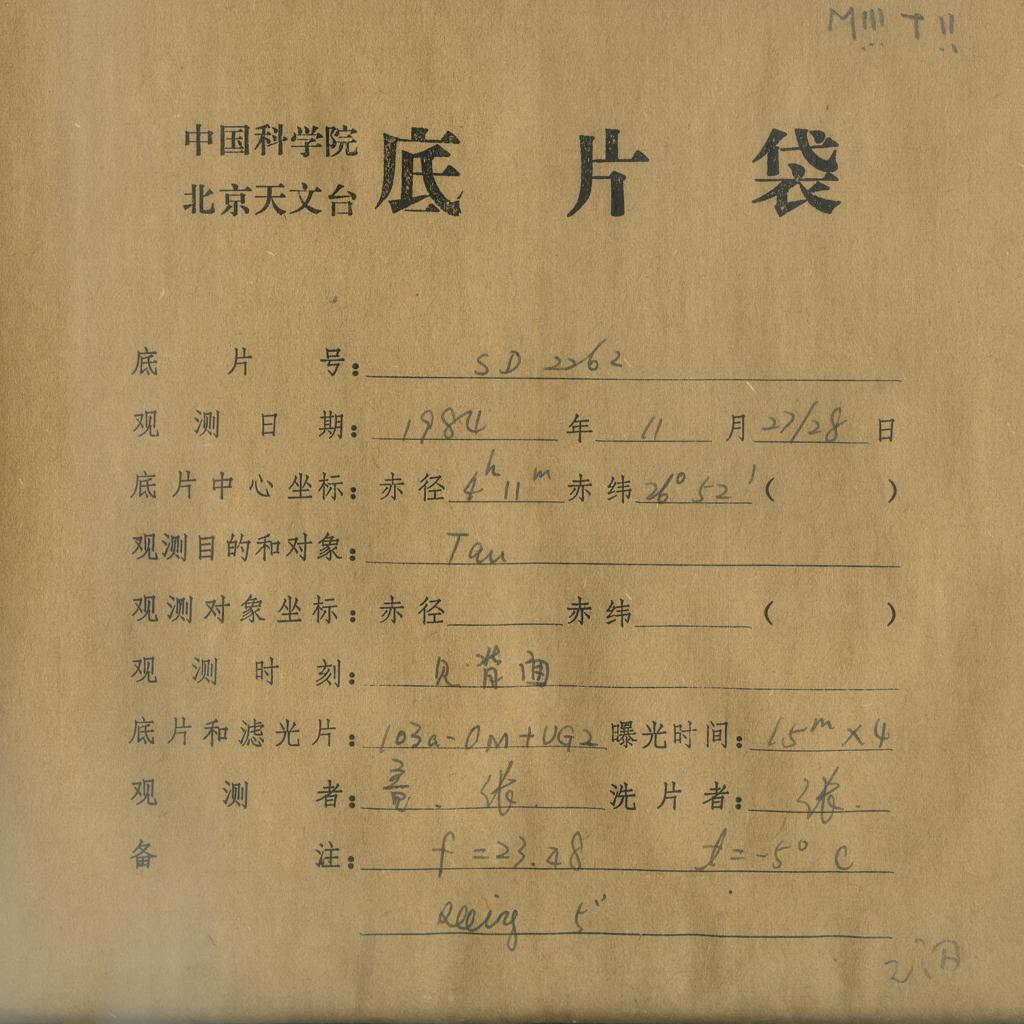 M!!! T!!
中国科学院
北京天文台
底片袋
底片号： SD 2262
观测日期： 1984 年 11 月 27/28 日
底片中心坐标：赤径 4ʰ 11ᵐ 赤纬 26° 52′ （ ）
观测目的和对象： Tau
观测对象坐标：赤径 赤纬 （ ）
观测时刻： 见背面
底片和滤光片： 103a-OM+UG2 曝光时间： 15ᵐ×4
观测者： 张. 洗片者： 张.
备注： f=23.48 t=-5° C
seeing 5″